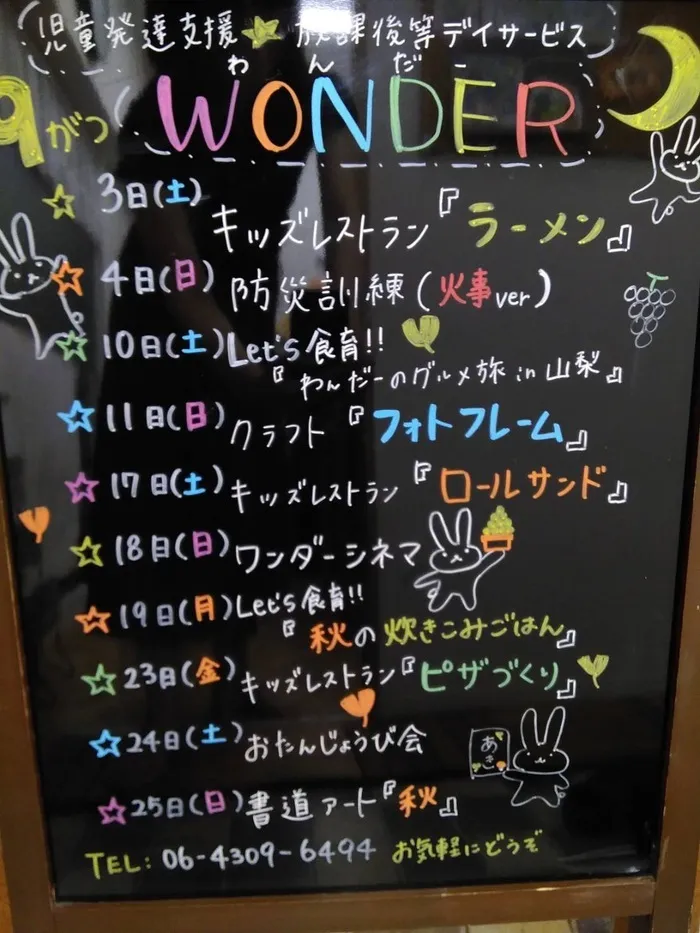 児童発達支援★放課後等デイサービス
わんだー
9がつ WONDER
☆3日(土) キッズレストラン『ラーメン』
☆4日(日) 防災訓練(火事ver)
☆10日(土) Let's食育!!
『わんだーのグルメ旅in山梨』
☆11日(日) クラフト『フォトフレーム』
☆17日(土) キッズレストラン『ロールサンド』
☆18日(日) ワンダーシネマ
☆19日(月) Let's食育!!
『秋の炊きこみごはん』
☆23日(金) キッズレストラン『ピザづくり』
☆24日(土) おたんじょうび会
あき
☆25日(日) 書道アート『秋』
TEL: 06-4309-6494 お気軽にどうぞ